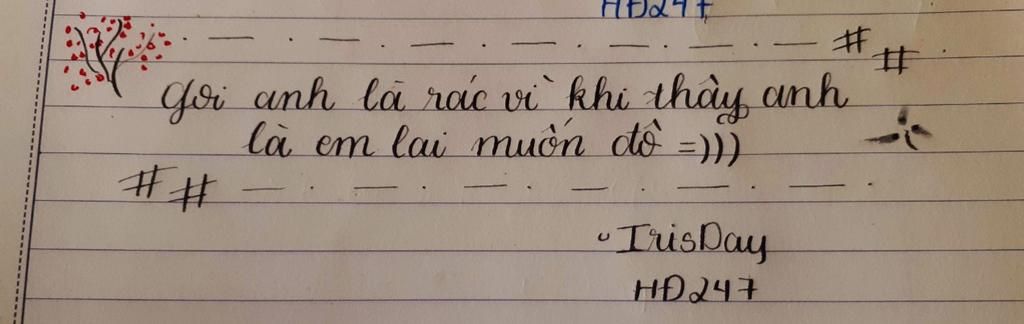 HĐ247
gọi anh là rác vì khi thấy anh
là em lại muốn đổ =)))
IrisDay
HĐ247